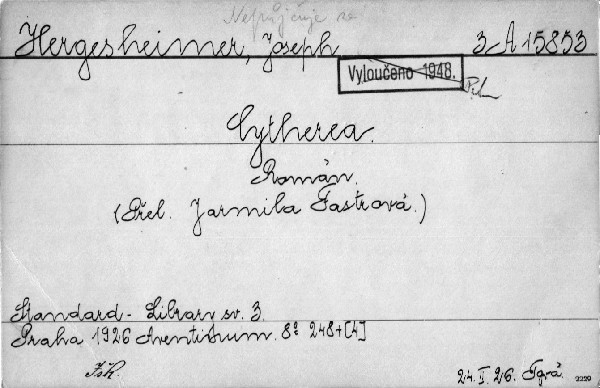 Nepůjčuje se
Hergesheimer, Joseph 3-A 15853
Vyloučeno 1948.
Cytherea.
Román.
(Přel. Jarmila Fastrová.)
Standard-Library sv. 3.
Praha 1926 Aventinum. 8° 248+[4]
24. I. 26.
2220